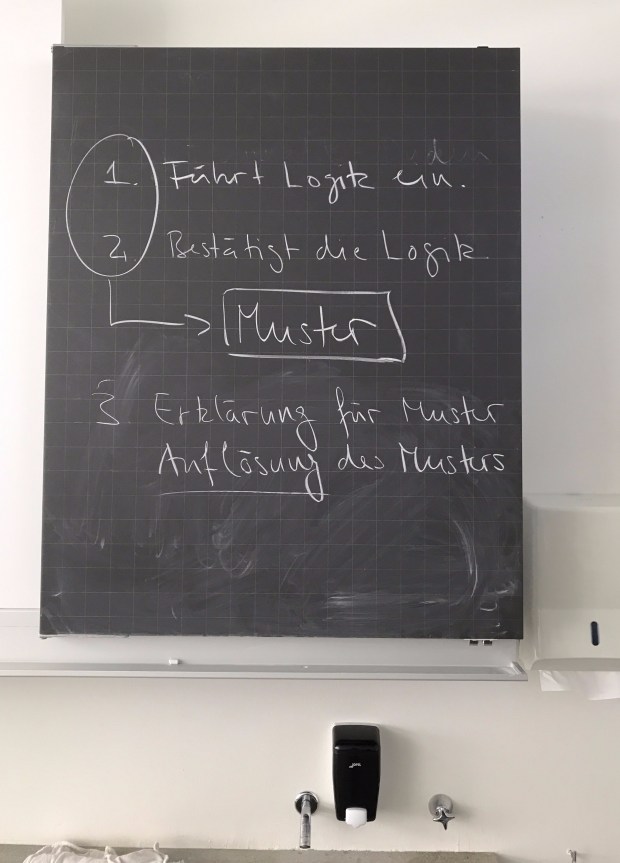 1. Führt Logik ein.
2. Bestätigt die Logik
Muster
3 Erklärung für Muster
Auflösung des Musters